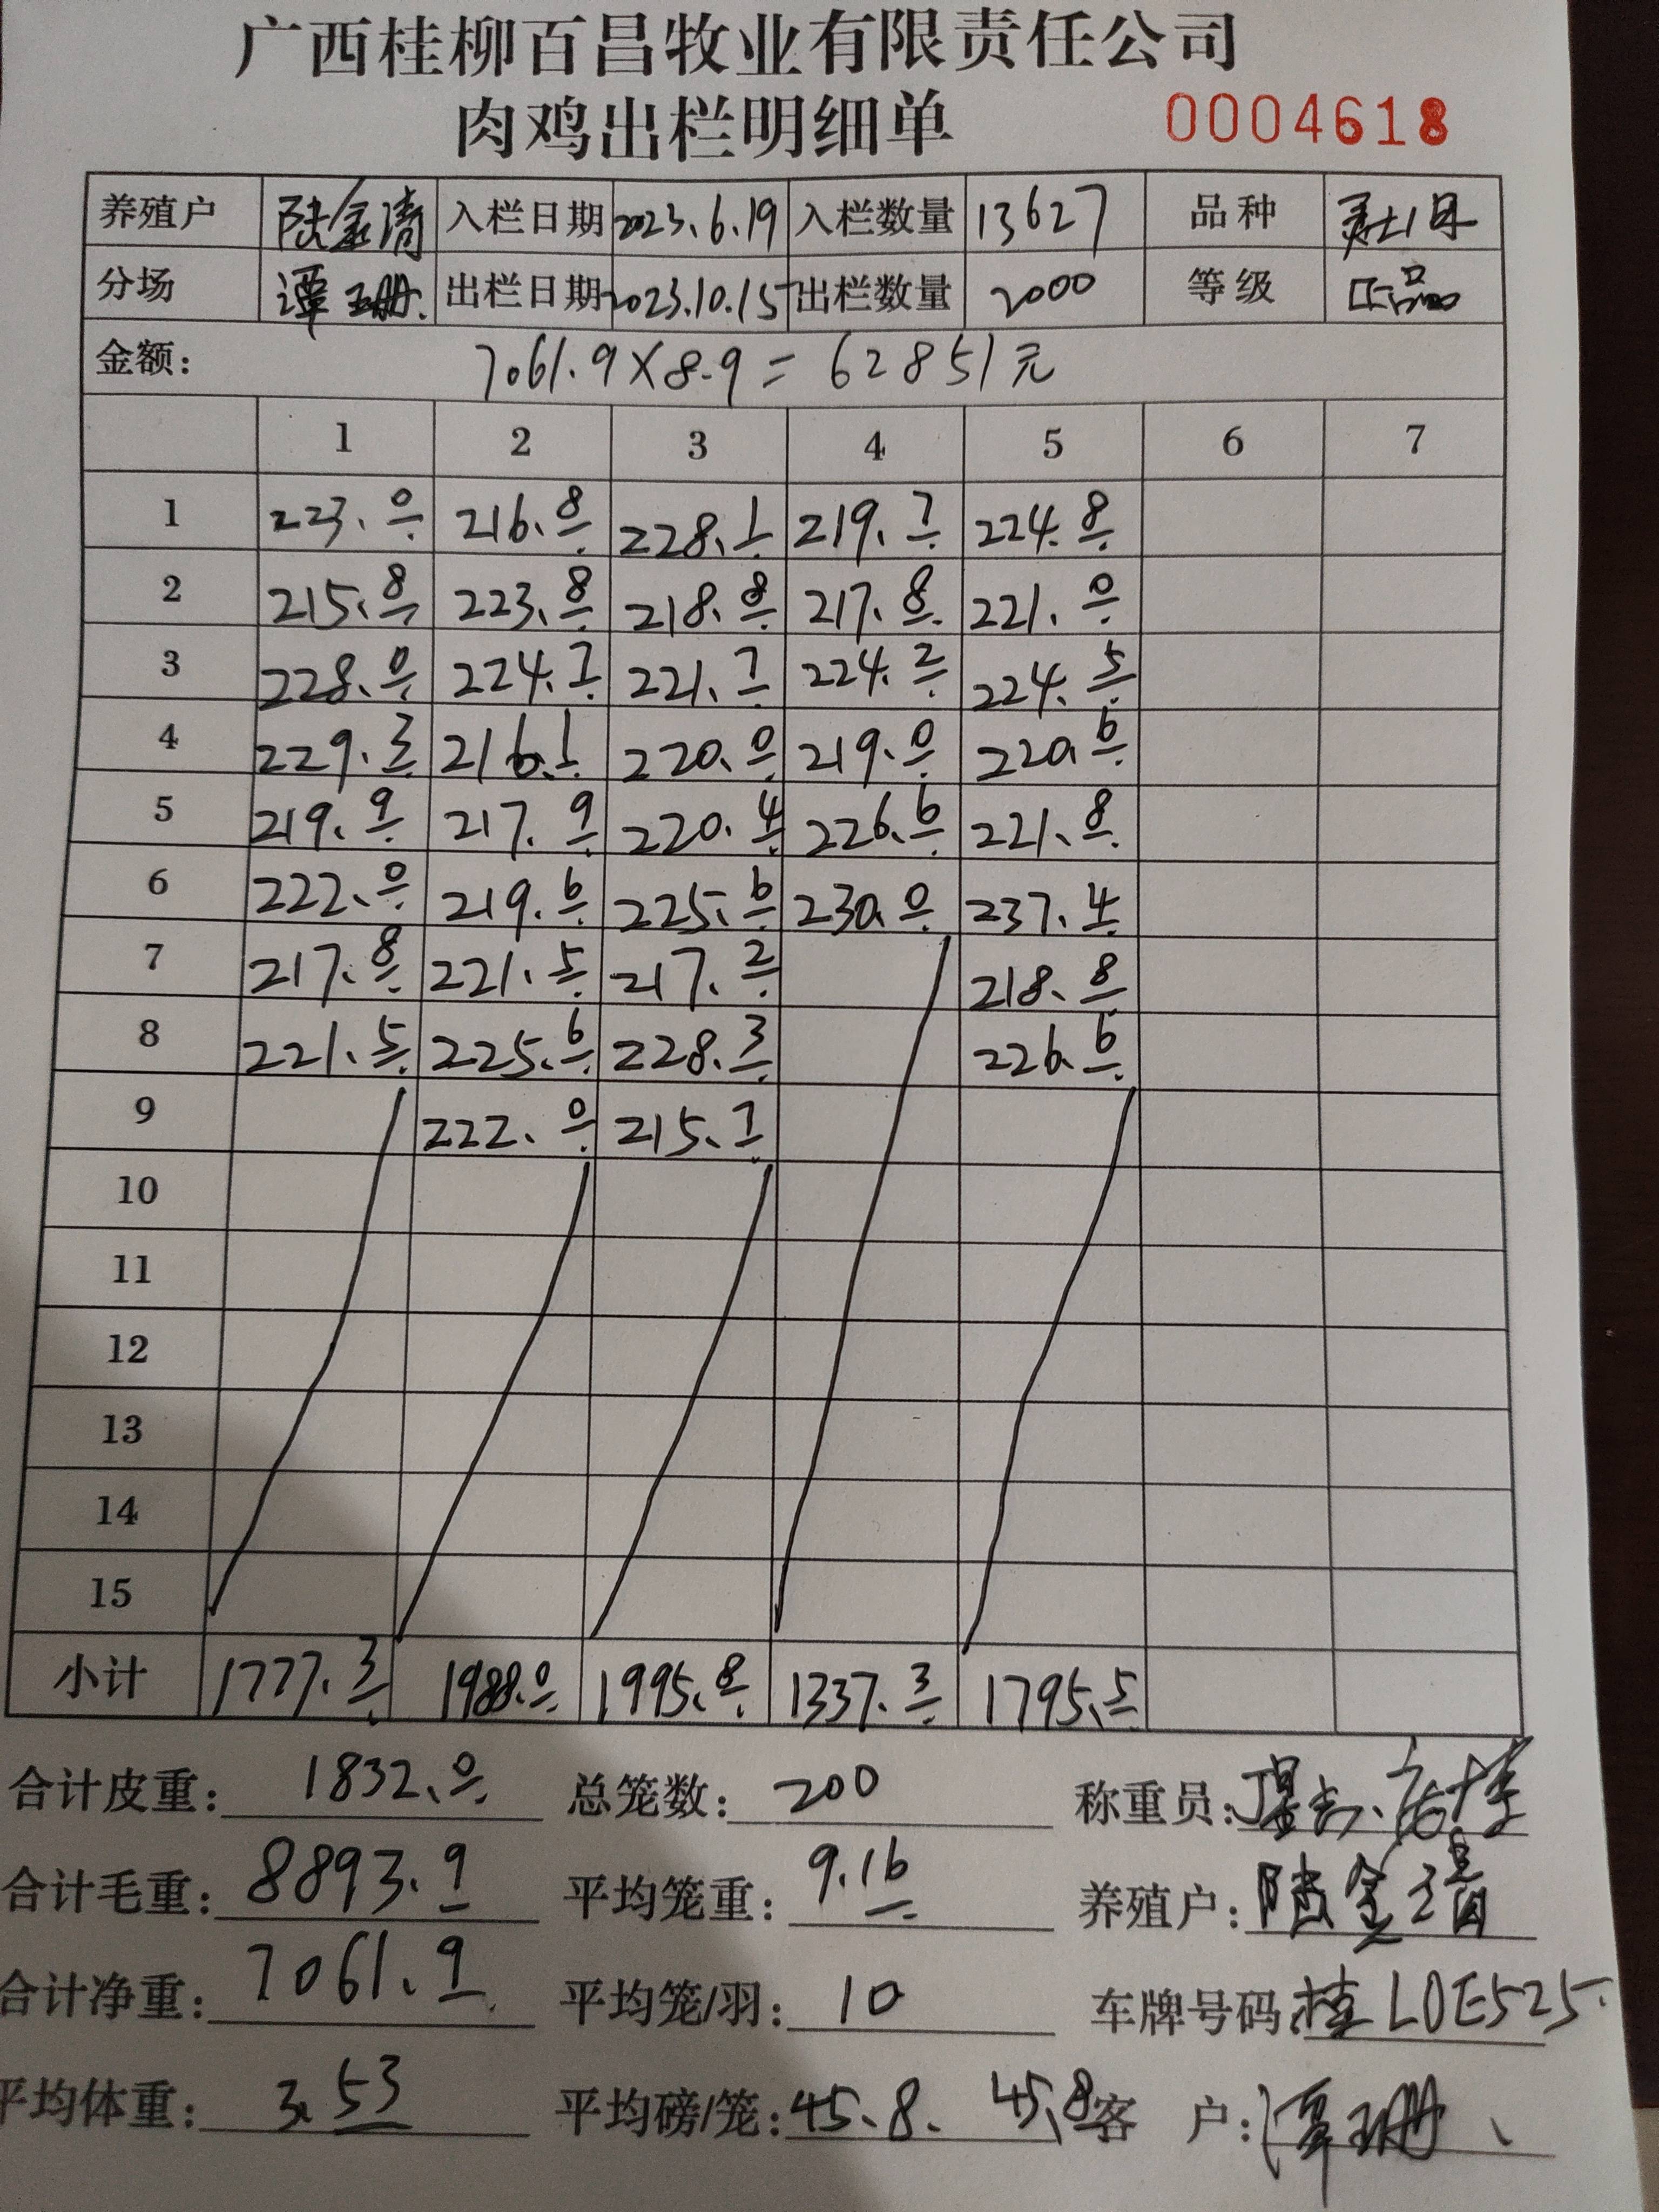 广西桂柳百昌牧业有限责任公司
肉鸡出栏明细单 0004618
养殖户 陆金清 入栏日期 2023.6.19 入栏数量 13627 品种
分场 谭玉珊. 出栏日期 2023.10.15 出栏数量 2000 等级 正品
金额: 7061.9×8.9=62851元
1 2 3 4 5 6 7
1 223.0 216.8 228.1 219.7 224.8
2 215.8 223.8 218.8 217.8 221.0
3 228.0 224.7 221.7 224.2 224.5
4 229.3 216.1 220.0 219.0 220.6
5 219.9 217.9 220.4 226.6 221.8
6 222.0 219.6 225.6 230.0 237.4
7 217.8 221.5 217.2 218.8
8 221.5 225.6 228.3 226.6
9 222.0 215.7
10
11
12
13
14
15
小计 1777.3 1988.0 1995.8 1337.3 1795.5
合计皮重: 1832.0 总笼数: 200 称重员:
合计毛重: 8893.9 平均笼重: 9.16 养殖户: 陆金清
合计净重: 7061.9 平均笼/羽: 10 车牌号码: 桂L0E525
平均体重: 3.53 平均磅/笼: 45.8. 45.8 客 户: 谭玉珊